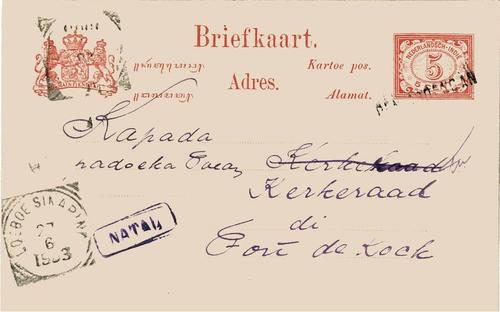 Briefkaart.
Adres.
Kartoe pos.
Alamat.
NEDERLANDSCH-INDIË
5
Kapada
padoeka Toean Kerkeraad
Kerkeraad
di
Fort de Kock
LOEBOE SIKAPING
27
6
1903
NATAL